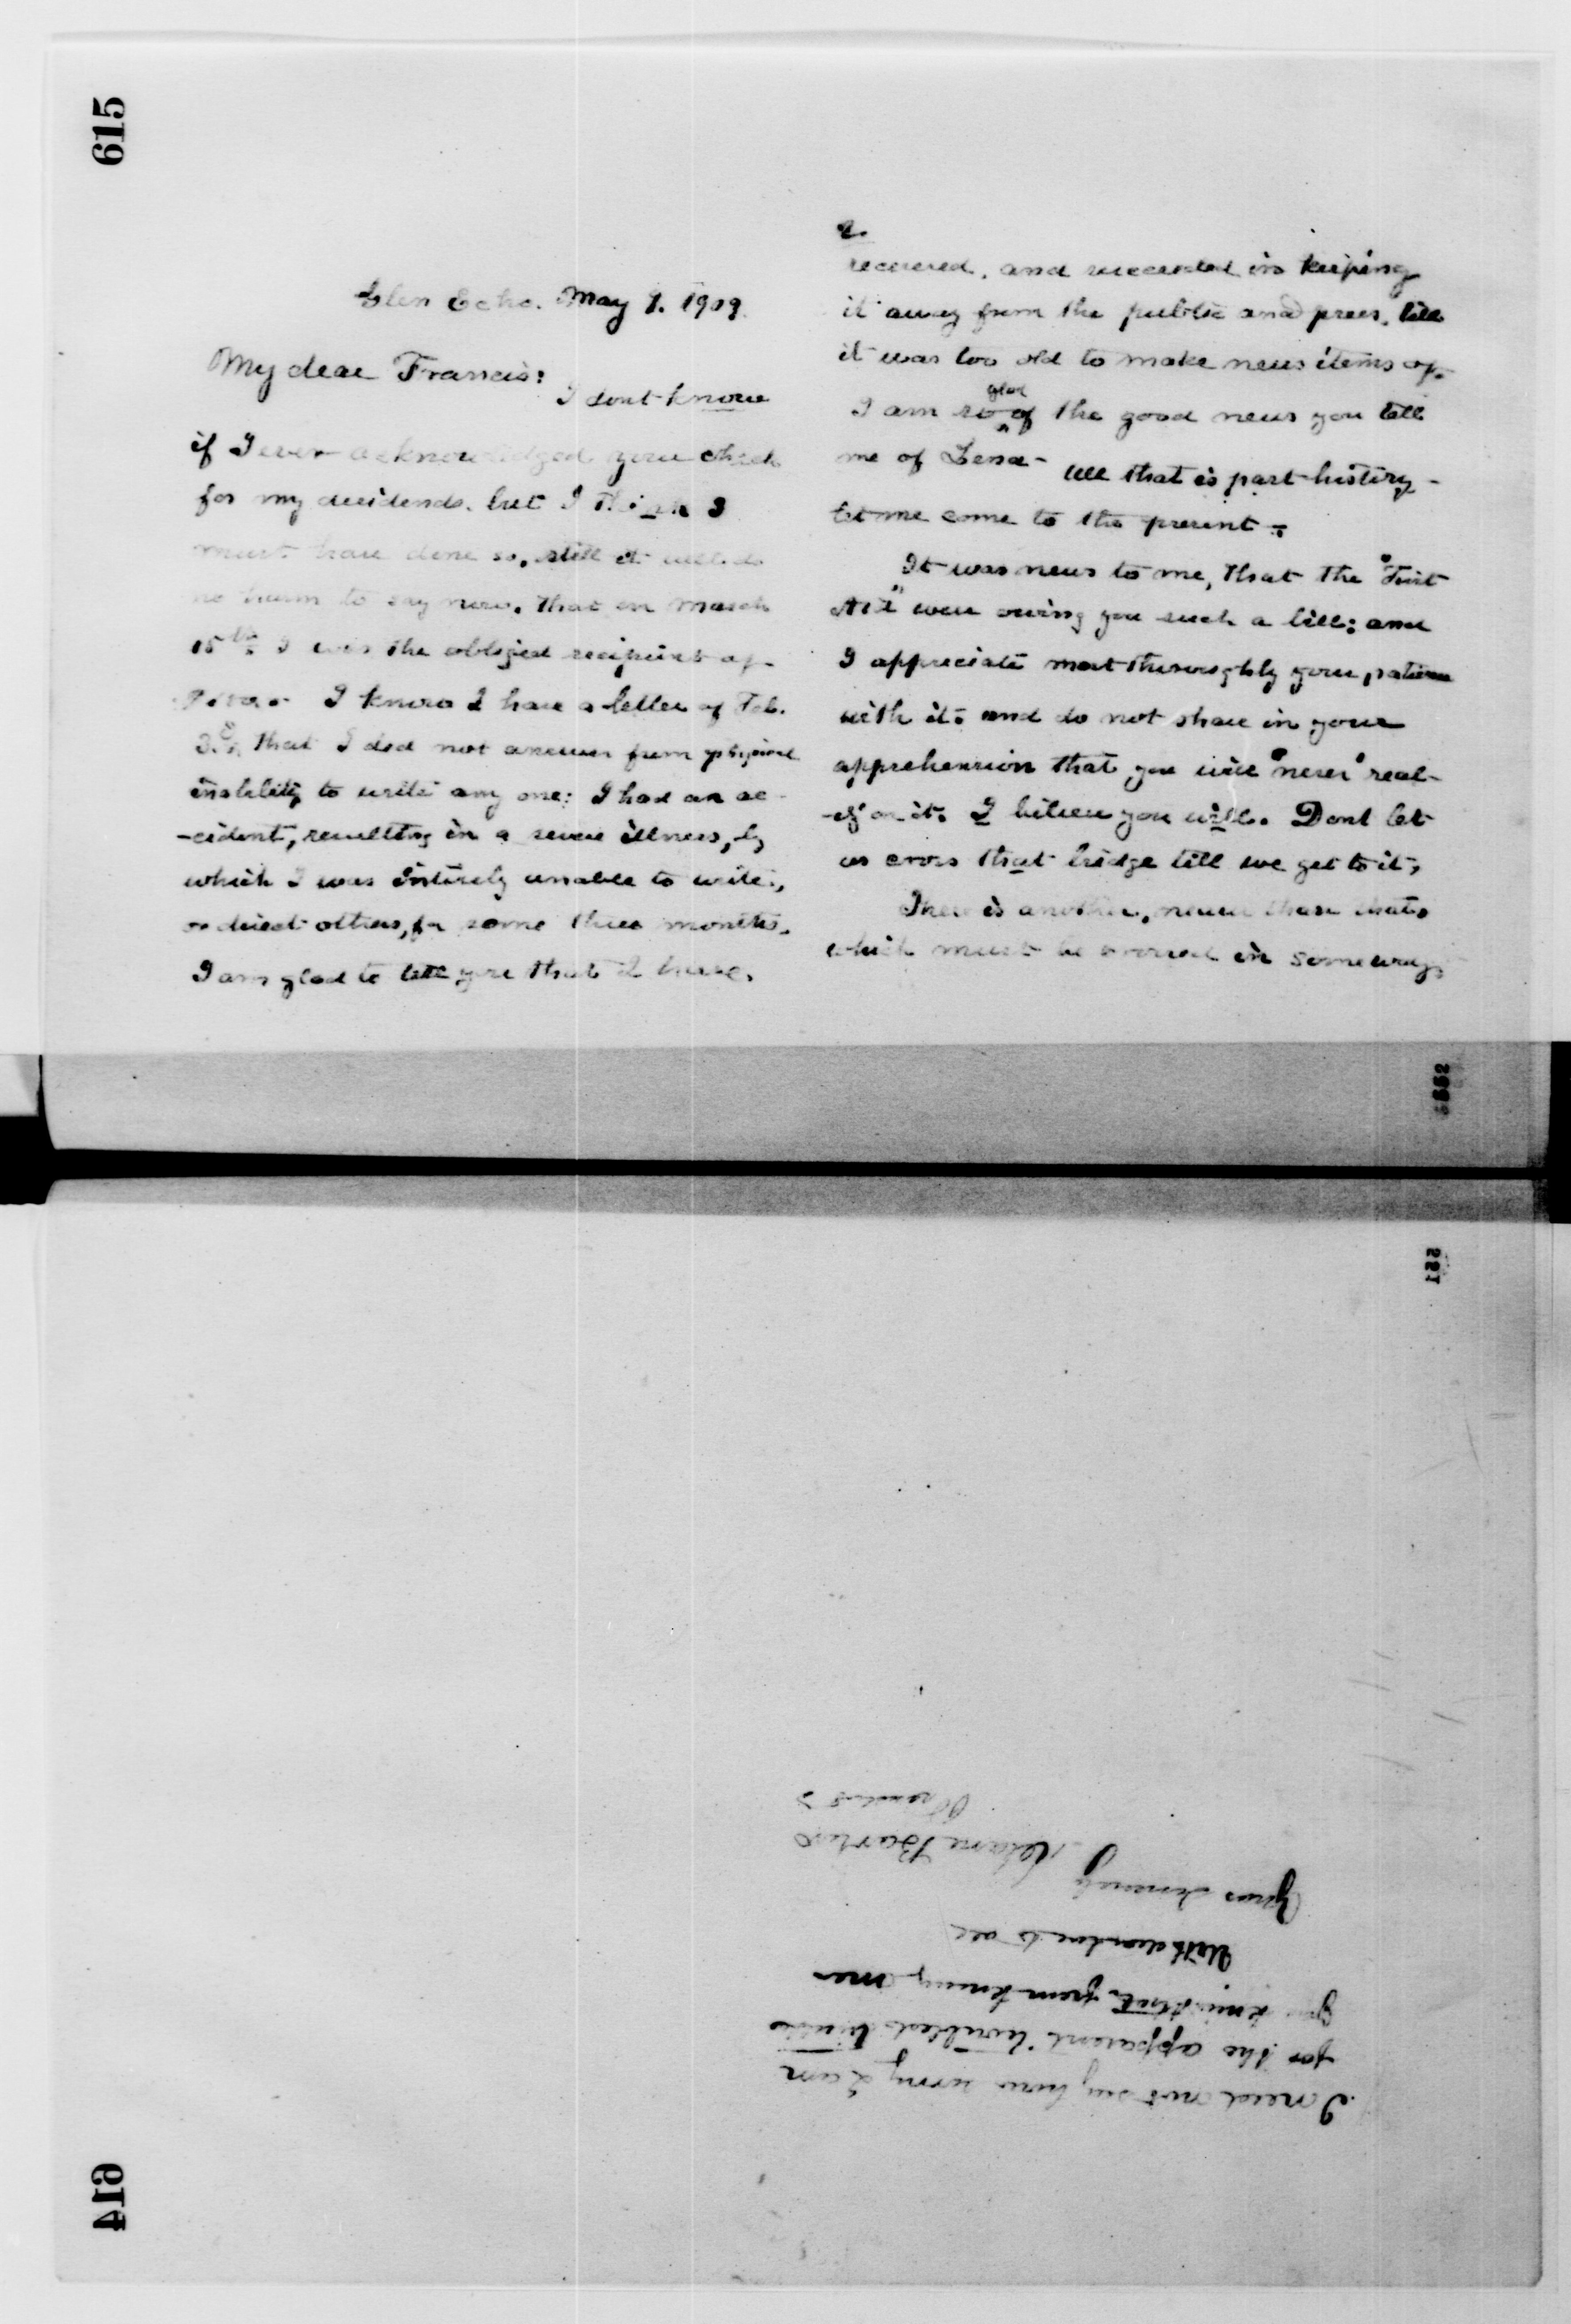 615
Glen Echo. May 9. 1909.
My dear Francis:
I dont know
if I ever acknowledged your check
for my dividends. but I think I
must have done so, still it will do
no harm to say now, that on March
15th I was the obliged recipient of
I know I have a letter of Feb.
that I did not answer from physical
inability to write any one: I had an ac-
-cident, resulting in a severe illness, by
which I was intirely unable to write,
or direct others, for some three months.
I am glad to tell you that I have,
2.
recovered, and succeeded in keeping
it away from the public and press, till
it was too old to make news items of.
glad
I am so of the good news you tell
me of Lena - All that is past history -
let me come to the present -
It was news to me, that the "First
Aid" were owing you such a bill: and
I appreciate most thoroughly your patience
with it: and do not share in your
apprehension that you will "never" real-
-ize on it. I believe you will. Dont let
us cross that bridge till we get to it,
There is another, newer than that,
which must be crossed in some way,
221
I need not say how sorry I am
for the apparent trouble
you know that from knowing me
With dear love to all
Yours sincerely
Clara Barton
President
614